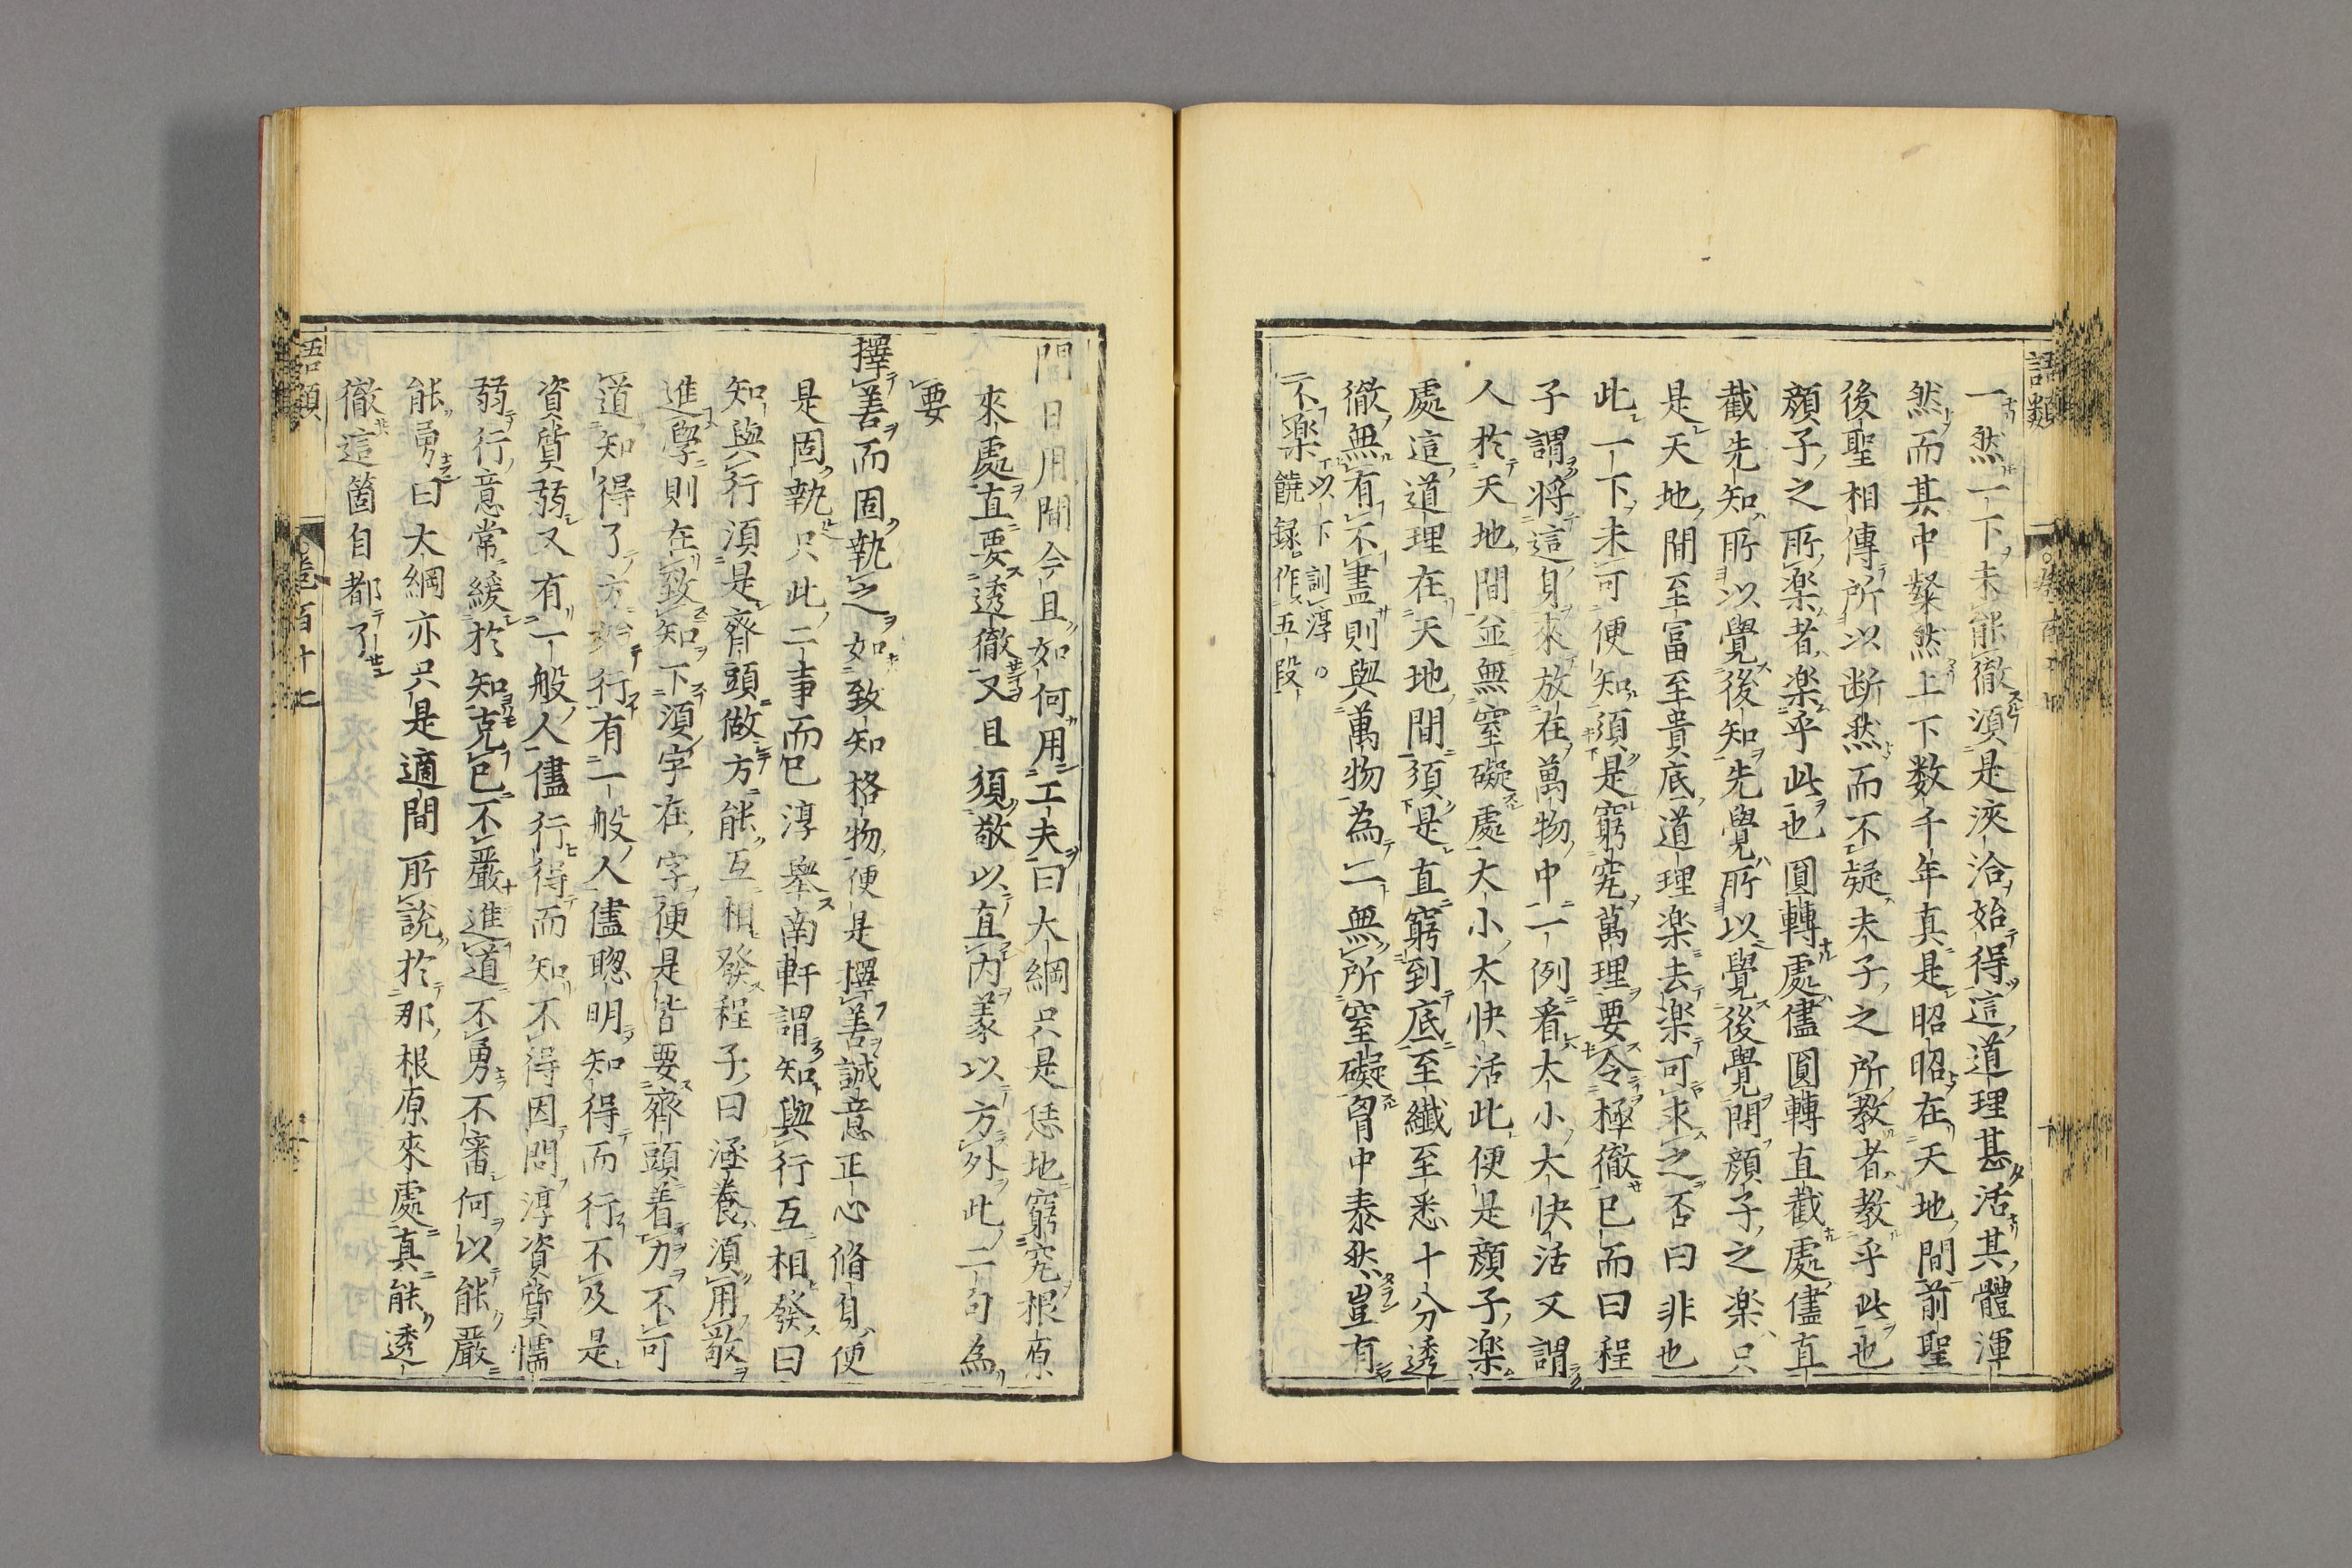 語類
一然一下未能徹須是浹洽始得這道理甚活其體渾
然而其中粲然上下数千年真是昭昭在天地間前聖
後聖相傳所以断然而不疑夫子之所教者教乎此也
顔子之所楽者楽乎此也圓轉處儘圓轉直截處儘直
截先知所以覺後知先覺所以覺後覺問顔子之楽只
是天地間至富至貴底道理楽去楽可求之否曰非也
此一下未可便知須是窮究萬理要令極徹已而曰程
子謂將這身來放在萬物中一例看大小大快活又謂
人於天地間並無窒礙處大小大快活此便是顔子楽
處這道理在天地間須是直窮到底至纖至悉十分透
徹無有不盡則與萬物為一無所窒礙胷中泰然豈有
不楽以下訓淳○饒録作五段
問日用間今且如何用工夫曰大綱只是恁地窮究根原
來處直要透徹又且須敬以直内義以方外此二句為
要
擇善而固執之如致知格物便是擇善誠意正心脩身便
是固執只此二事而已淳舉南軒謂知與行互相發曰
知與行須是齊頭做方能互相發程子曰涵養須用敬
進學則在致知下須字在字便是皆要齊頭着力不可
道知得了方始行有一般人儘聦明知得而行不及是
資質弱又有一般人儘行得而知不得因問淳資質懦
弱行意常緩於知克已不嚴進道不勇不審何以能嚴
能勇曰大綱亦只是適間所說於那根原來處真能透
徹這箇自都了
語類 卷百十七